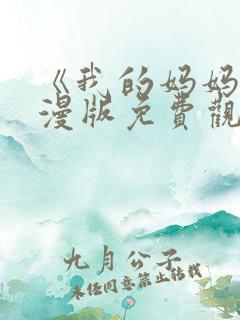 《我的妈妈
漫版免費觀
九月公子
未经同意禁止转载